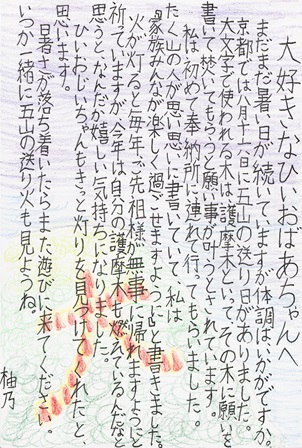 大好きなひいおばあちゃんへ
まだまだ暑い日が続いていますが体調はいかがですか。
京都では八月十一日に五山の送り火がありました。
大文字で使われる木は、護摩木といって、その木に願いを
書いて焚いてもらうと願い事が叶うとされています。
私は初めて奉納所に連れて行ってもらいました。
たく山の人が思い思いに書いていて、私は
「家族みんなが楽しく過ごせますように」と書きました。
火が灯ると毎年ご先祖様が無事に帰れますようにと
祈っていますが、今年は自分の護摩木も燃えているんだなと
思うと、なんだか嬉しい気持ちになりました。
ひいおじいちゃんもきっと灯りを見つけてくれたと、
思います。
暑さが落ち着いたらまた遊びに来てください。
いつか一緒に五山の送り火も見ようね。
柚乃